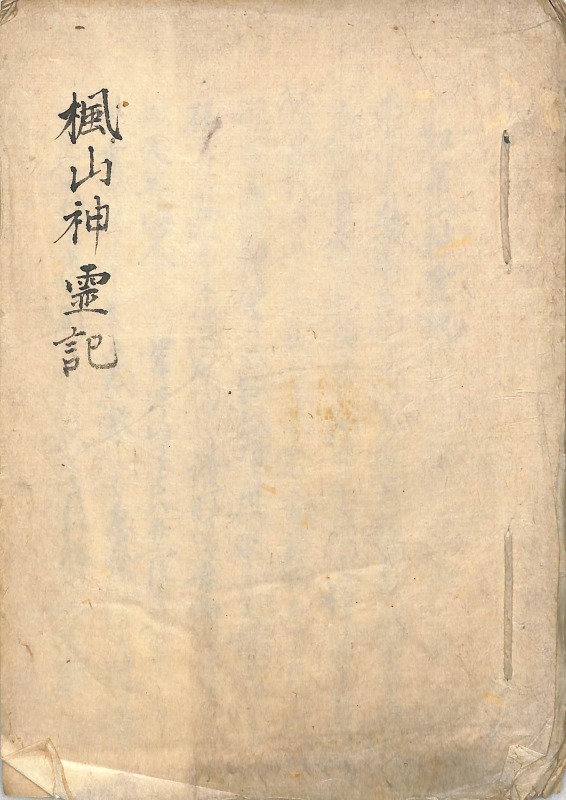 楓山神霊記